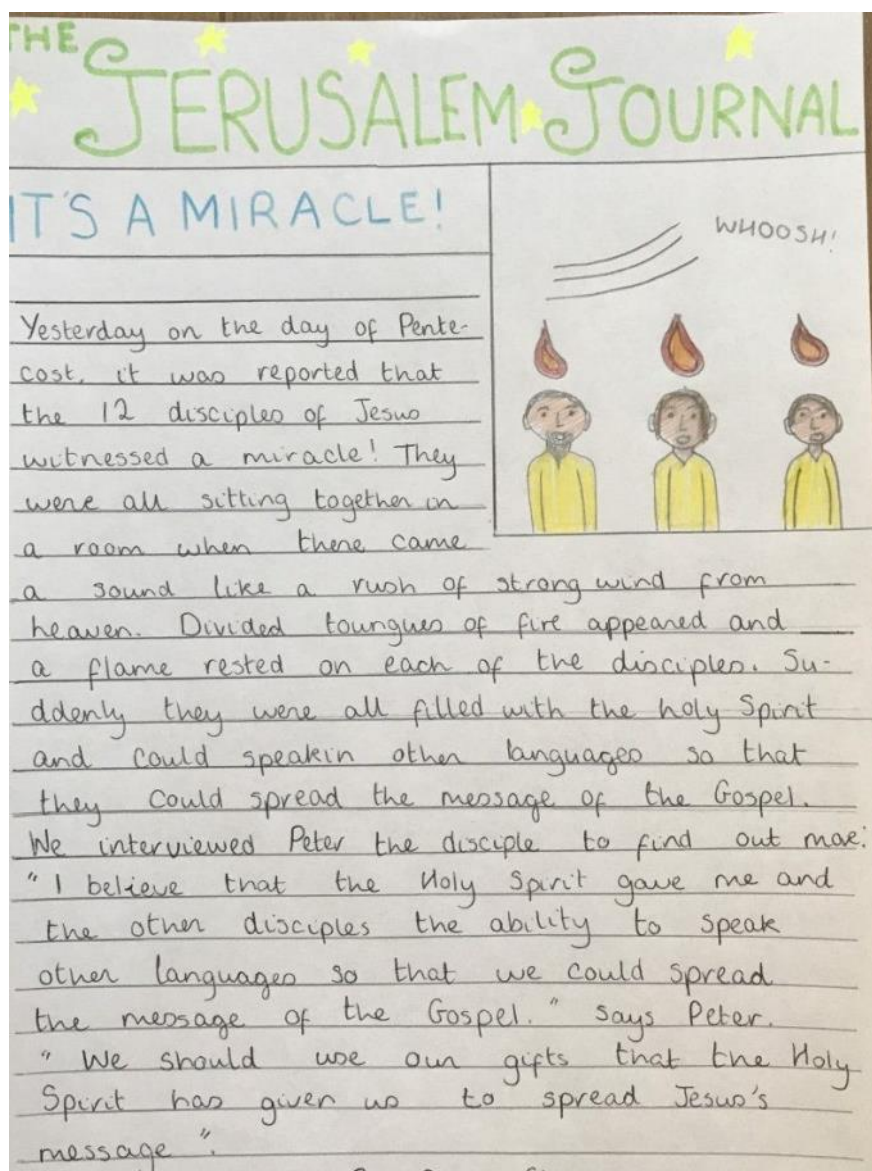 THE
JERUSALEM JOURNAL
IT'S A MIRACLE!
WHOOSH!
Yesterday on the day of Pente-
cost, it was reported that
the 12 disciples of Jesus
witnessed a miracle! They
were all sitting together in
a room when there came
a sound like a rush of strong wind from
heaven. Divided toungues of fire appeared and
a flame rested on each of the disciples. Su-
ddenly they were all filled with the holy Spirit
and could speakin other languages so that
they could spread the message of the Gospel.
We interviewed Peter the disciple to find out more:
"I believe that the Holy Spirit gave me and
the other disciples the ability to speak
other languages so that we could spread
the message of the Gospel." says Peter.
"We should use our gifts that the Holy
Spirit has given us to spread Jesus's
message".